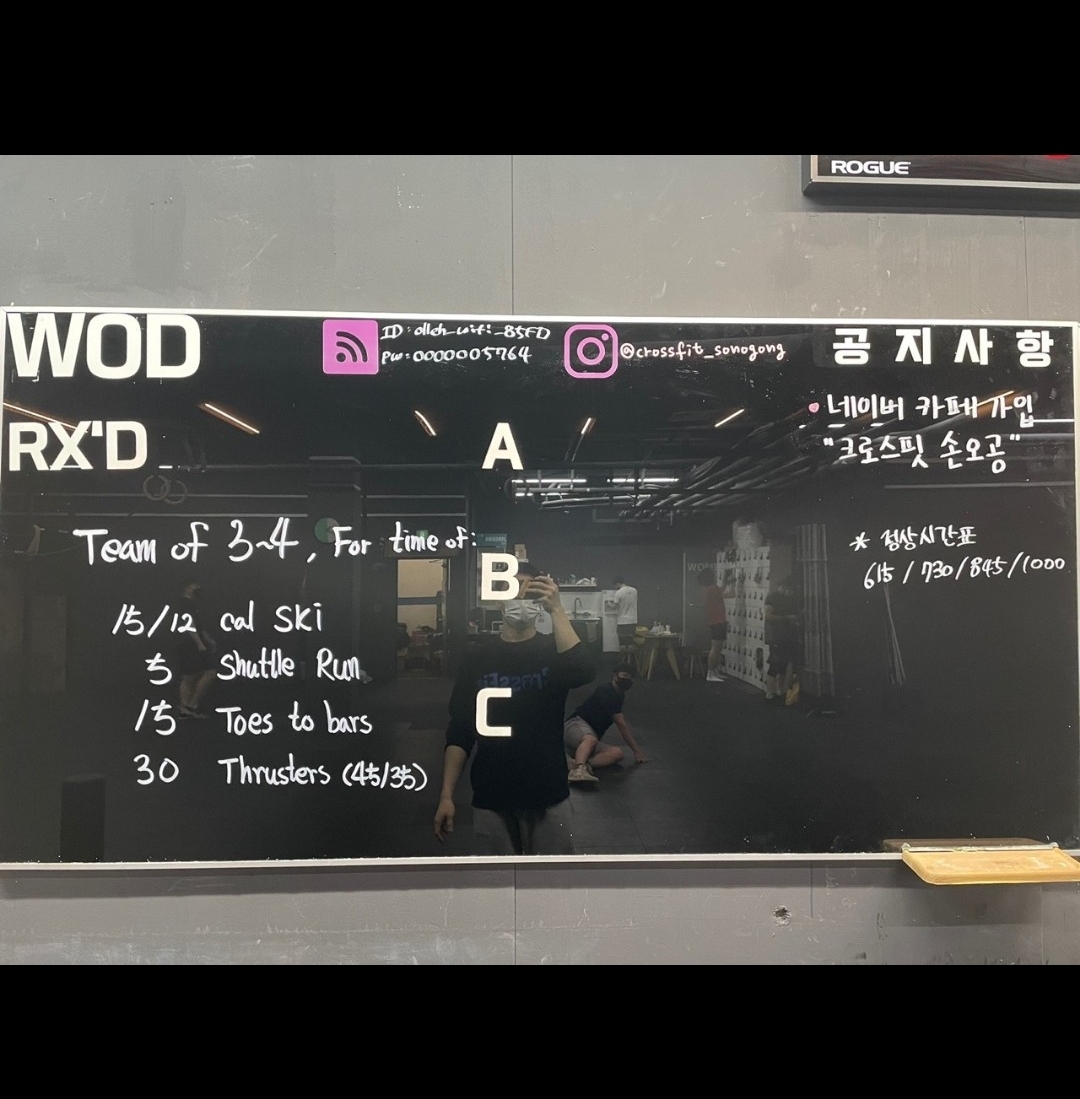 ROGUE
WOD
ID: olleh_wifi_85FD
PW: 0000005764
@crossfit_sonogong
공지사항
RX'D
A
B
C
Team of 3~4, For time of:
15/12 cal Ski
5 Shuttle Run
15 Toes to bars
30 Thrusters (45/35)
• 네이버 카페 가입
"크로스핏 손오공"
* 정상시간표
615 / 730 / 845 / 1000